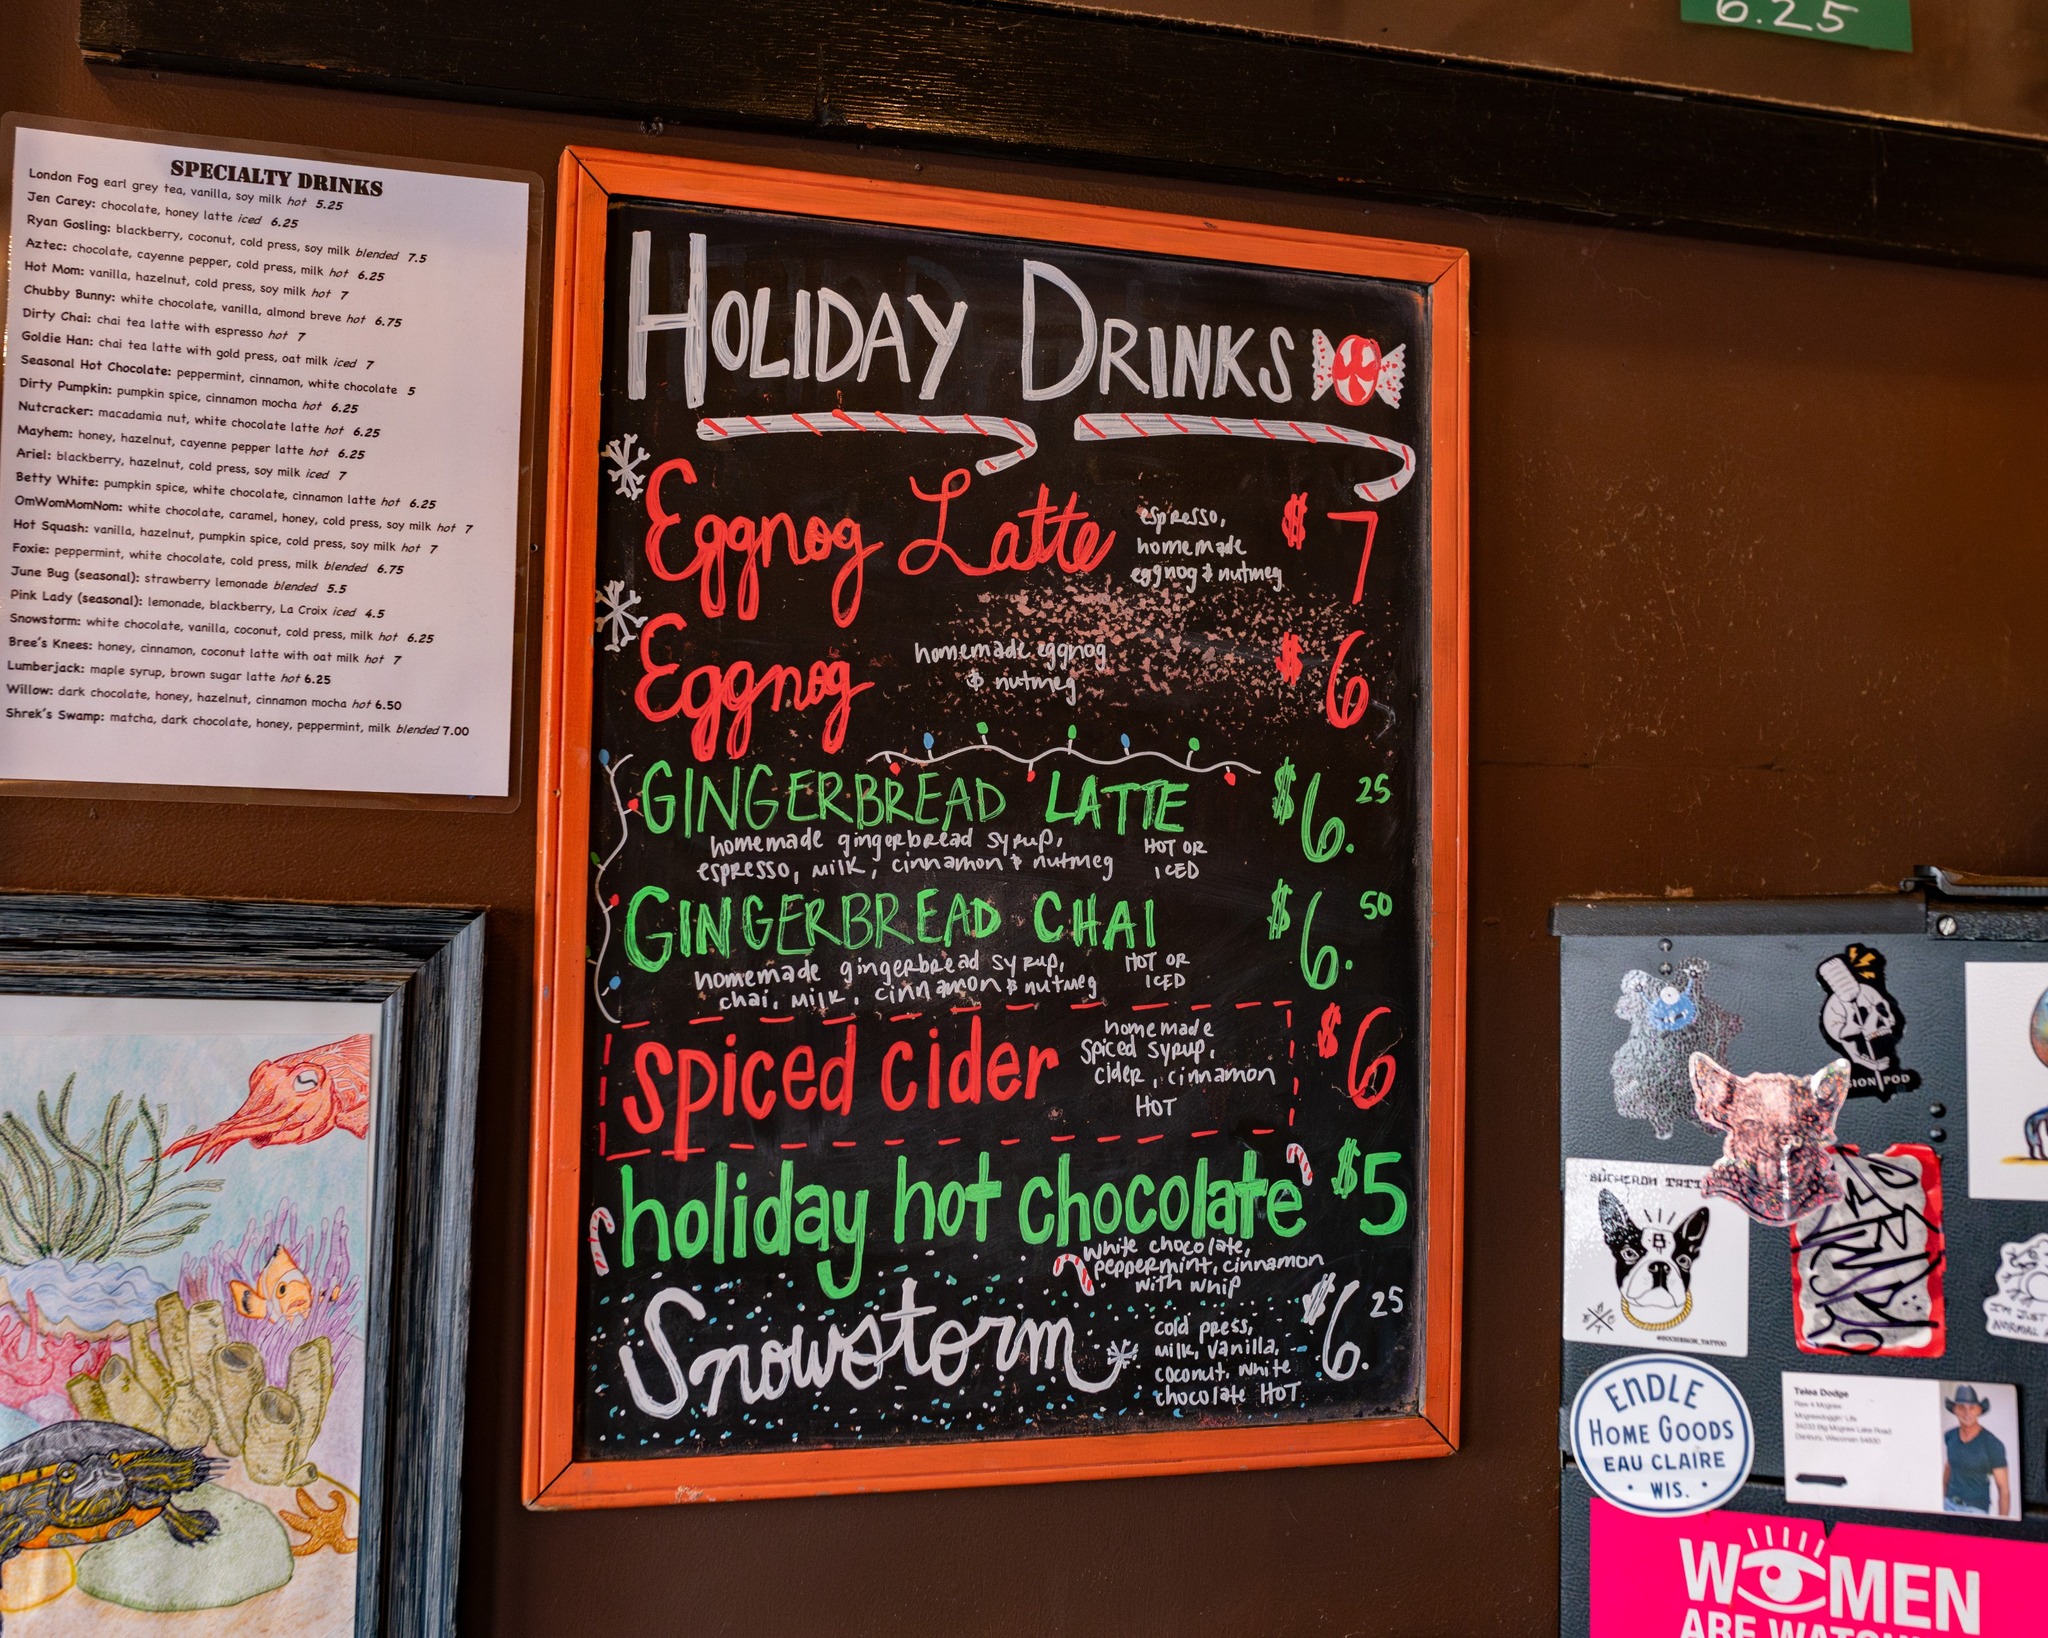 6.25
SPECIALTY DRINKS
London Fog earl grey tea, vanilla, soy milk hot 5.25
Jen Carey: chocolate, honey latte iced 6.25
Ryan Gosling: blackberry, coconut, cold press, soy milk blended 7.5
Aztec: chocolate, cayenne pepper, cold press, milk hot 6.25
Hot Mom: vanilla, hazelnut, cold press, soy milk hot 7
Chubby Bunny: white chocolate, vanilla, almond breve hot 6.75
Dirty Chai: chai tea latte with espresso hot 7
Goldie Han: chai tea latte with gold press, oat milk iced 7
Seasonal Hot Chocolate: peppermint, cinnamon, white chocolate 5
Dirty Pumpkin: pumpkin spice, cinnamon mocha hot 6.25
Nutcracker: macadamia nut, white chocolate latte hot 6.25
Mayhem: honey, hazelnut, cayenne pepper latte hot 6.25
Ariel: blackberry, hazelnut, cold press, soy milk iced 7
Betty White: pumpkin spice, white chocolate, cinnamon latte hot 6.25
OmWomMomNom: white chocolate, caramel, honey, cold press, soy milk hot 7
Hot Squash: vanilla, hazelnut, pumpkin spice, cold press, soy milk hot 7
Foxie: peppermint, white chocolate, cold press, milk blended 6.75
June Bug (seasonal): strawberry lemonade blended 5.5
Pink Lady (seasonal): lemonade, blackberry, La Croix iced 4.5
Snowstorm: white chocolate, vanilla, coconut, cold press, milk hot 6.25
Bree's Knees: honey, cinnamon, coconut latte with oat milk hot 7
Lumberjack: maple syrup, brown sugar latte hot 6.25
Willow: dark chocolate, honey, hazelnut, cinnamon mocha hot 6.50
Shrek's Swamp: matcha, dark chocolate, honey, peppermint, milk blended 7.00
HOLIDAY DRINKS
Eggnog Latte
espresso,
homemade
eggnog & nutmeg
$ 7
Eggnog
homemade eggnog
& nutmeg
$ 6
GINGERBREAD LATTE $6.25
homemade gingerbread syrup,
espresso, milk, cinnamon & nutmeg
HOT OR
ICED
GINGERBREAD CHAI $6.50
homemade gingerbread syrup,
chai, milk, cinnamon & nutmeg
HOT OR
ICED
spiced cider
homemade
spiced syrup,
cider, cinnamon
HOT
$6
holiday hot chocolate $5
white chocolate,
peppermint, cinnamon
with whip
Snowstorm
cold press,
milk, vanilla,
coconut, white
chocolate HOT
$6.25
SION POD
BUCHERON TATT
@BUCHERON_TATTOO
I'M JUST
NORMAL
ENDLE
HOME GOODS
EAU CLAIRE
WIS.
Telea Dodge
Raw 4 Mcgrew
Mcgrewdoggin' Life
34233 Big Mcgraw Lake Road
Danbury, Wisconsin 54830
WOMEN
ARE WATCH